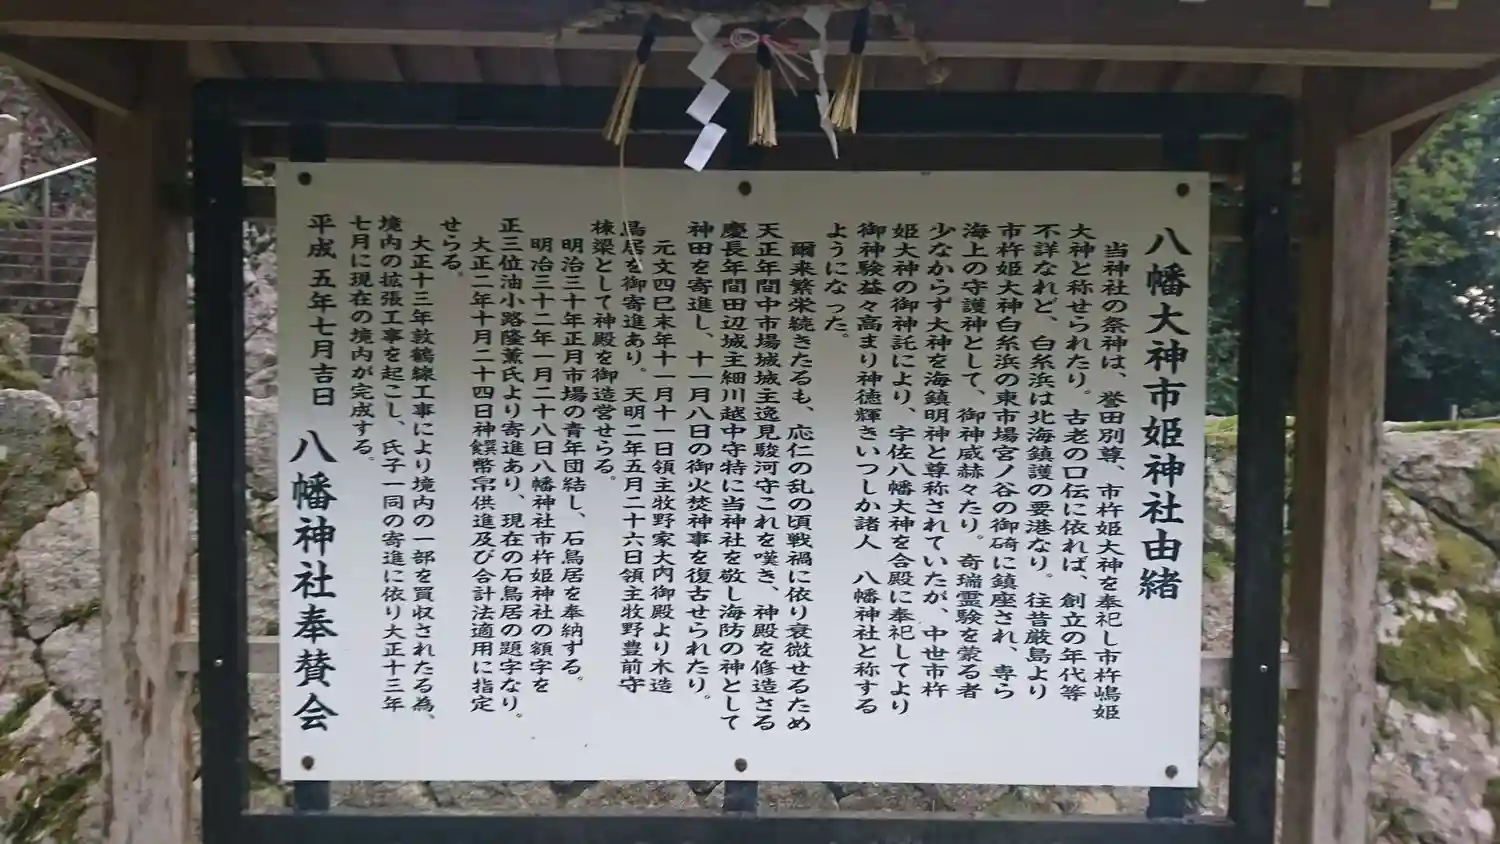 八幡大神市姫神社由緒
当神社の祭神は、誉田別尊、市杵姫大神を奉祀し市杵嶋姫
大神と称せられたり。古老の口伝に依れば、創立の年代等
不詳なれど、白糸浜は北海鎮護の要港なり。往昔厳島より
市杵姫大神白糸浜の東市場宮ノ谷の御碕に鎮座され、専ら
海上の守護神として、御神威赫々たり。奇瑞霊験を蒙る者
少なからず大神を海鎮明神と尊称されていたが、中世市杵
姫大神の御神託により、宇佐八幡大神を合殿に奉祀してより
御神験益々高まり神徳輝きいつしか諸人 八幡神社と称する
ようになった。
爾来繁栄続きたるも、応仁の乱の頃戦禍に依り衰微せるため
天正年間中市場城城主逸見駿河守これを嘆き、神殿を修造さる
慶長年間田辺城主細川越中守特に当神社を敬し海防の神として
神田を寄進し、十一月八日の御火焚神事を復古せられたり。
元文四巳未年十一月十一日領主牧野家大内御殿より木造
鳥居を御寄進あり。天明二年五月二十六日領主牧野豊前守
棟梁として神殿を御造営せらる。
明治三十年正月市場の青年団結し、石鳥居を奉納する。
明治三十二年一月二十八日八幡神社市杵姫神社の額字を
正三位油小路隆薫氏より寄進あり、現在の石鳥居の題字なり。
大正二年十月二十四日神饌幣帛供進及び合計法適用に指定
せらる。
大正十三年敦鶴線工事により境内の一部を買収されたる為、
境内の拡張工事を起こし、氏子一同の寄進に依り大正十三年
七月に現在の境内が完成する。
平成 五年七月吉日 八幡神社奉賛会